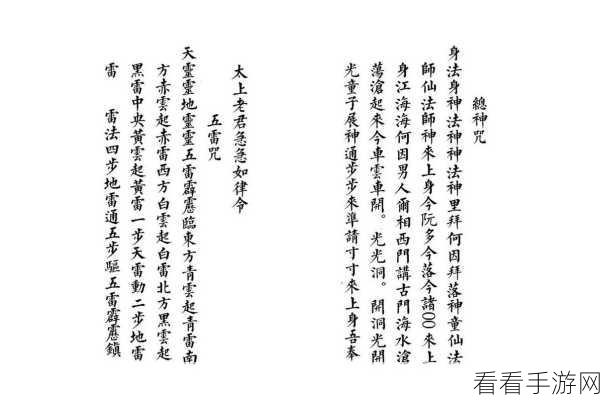 總神咒
身法身神法神神法神里拜何因拜落神童仙法
師仙法師神來上身今阮多今落今諸○○來上
身江海海何因男人爾相西門講古門海水滄
蕩滄起來今車雲車開。光光洞。開洞光開
光童子展神通步步來準請寸寸來上身吾奉
太上老君急急如律令
五雷咒
天靈靈地靈靈五雷霹靂臨東方青雲起青雷南
方赤雲起赤雷西方白雲起白雷北方黑雲起
黑雷中央黃雲起黃雷一步天雷動二步地雷
雷 雷法四步地雷通五步驅五雷霹靂鎮
看看手游网